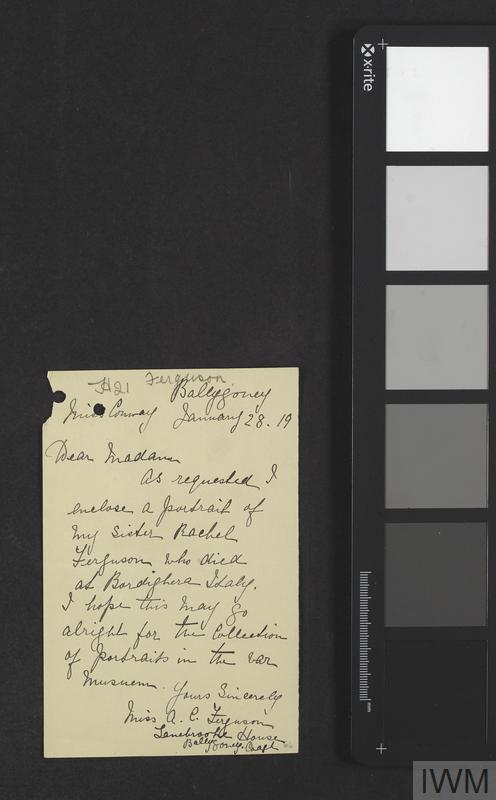 H21 Ferguson
Ballygoney
Miss Conway January 28. 19
Dear Madam
As requested I
enclose a portrait of
my sister Rachel
Ferguson who died
at Bordighera Italy.
I hope this may go
alright for the Collection
of portraits in the war
Musuem. Yours Sincerely
Miss A. C. Ferguson
Lanebrooke House
Ballygoney. Coagh
x-rite
mm
IWM